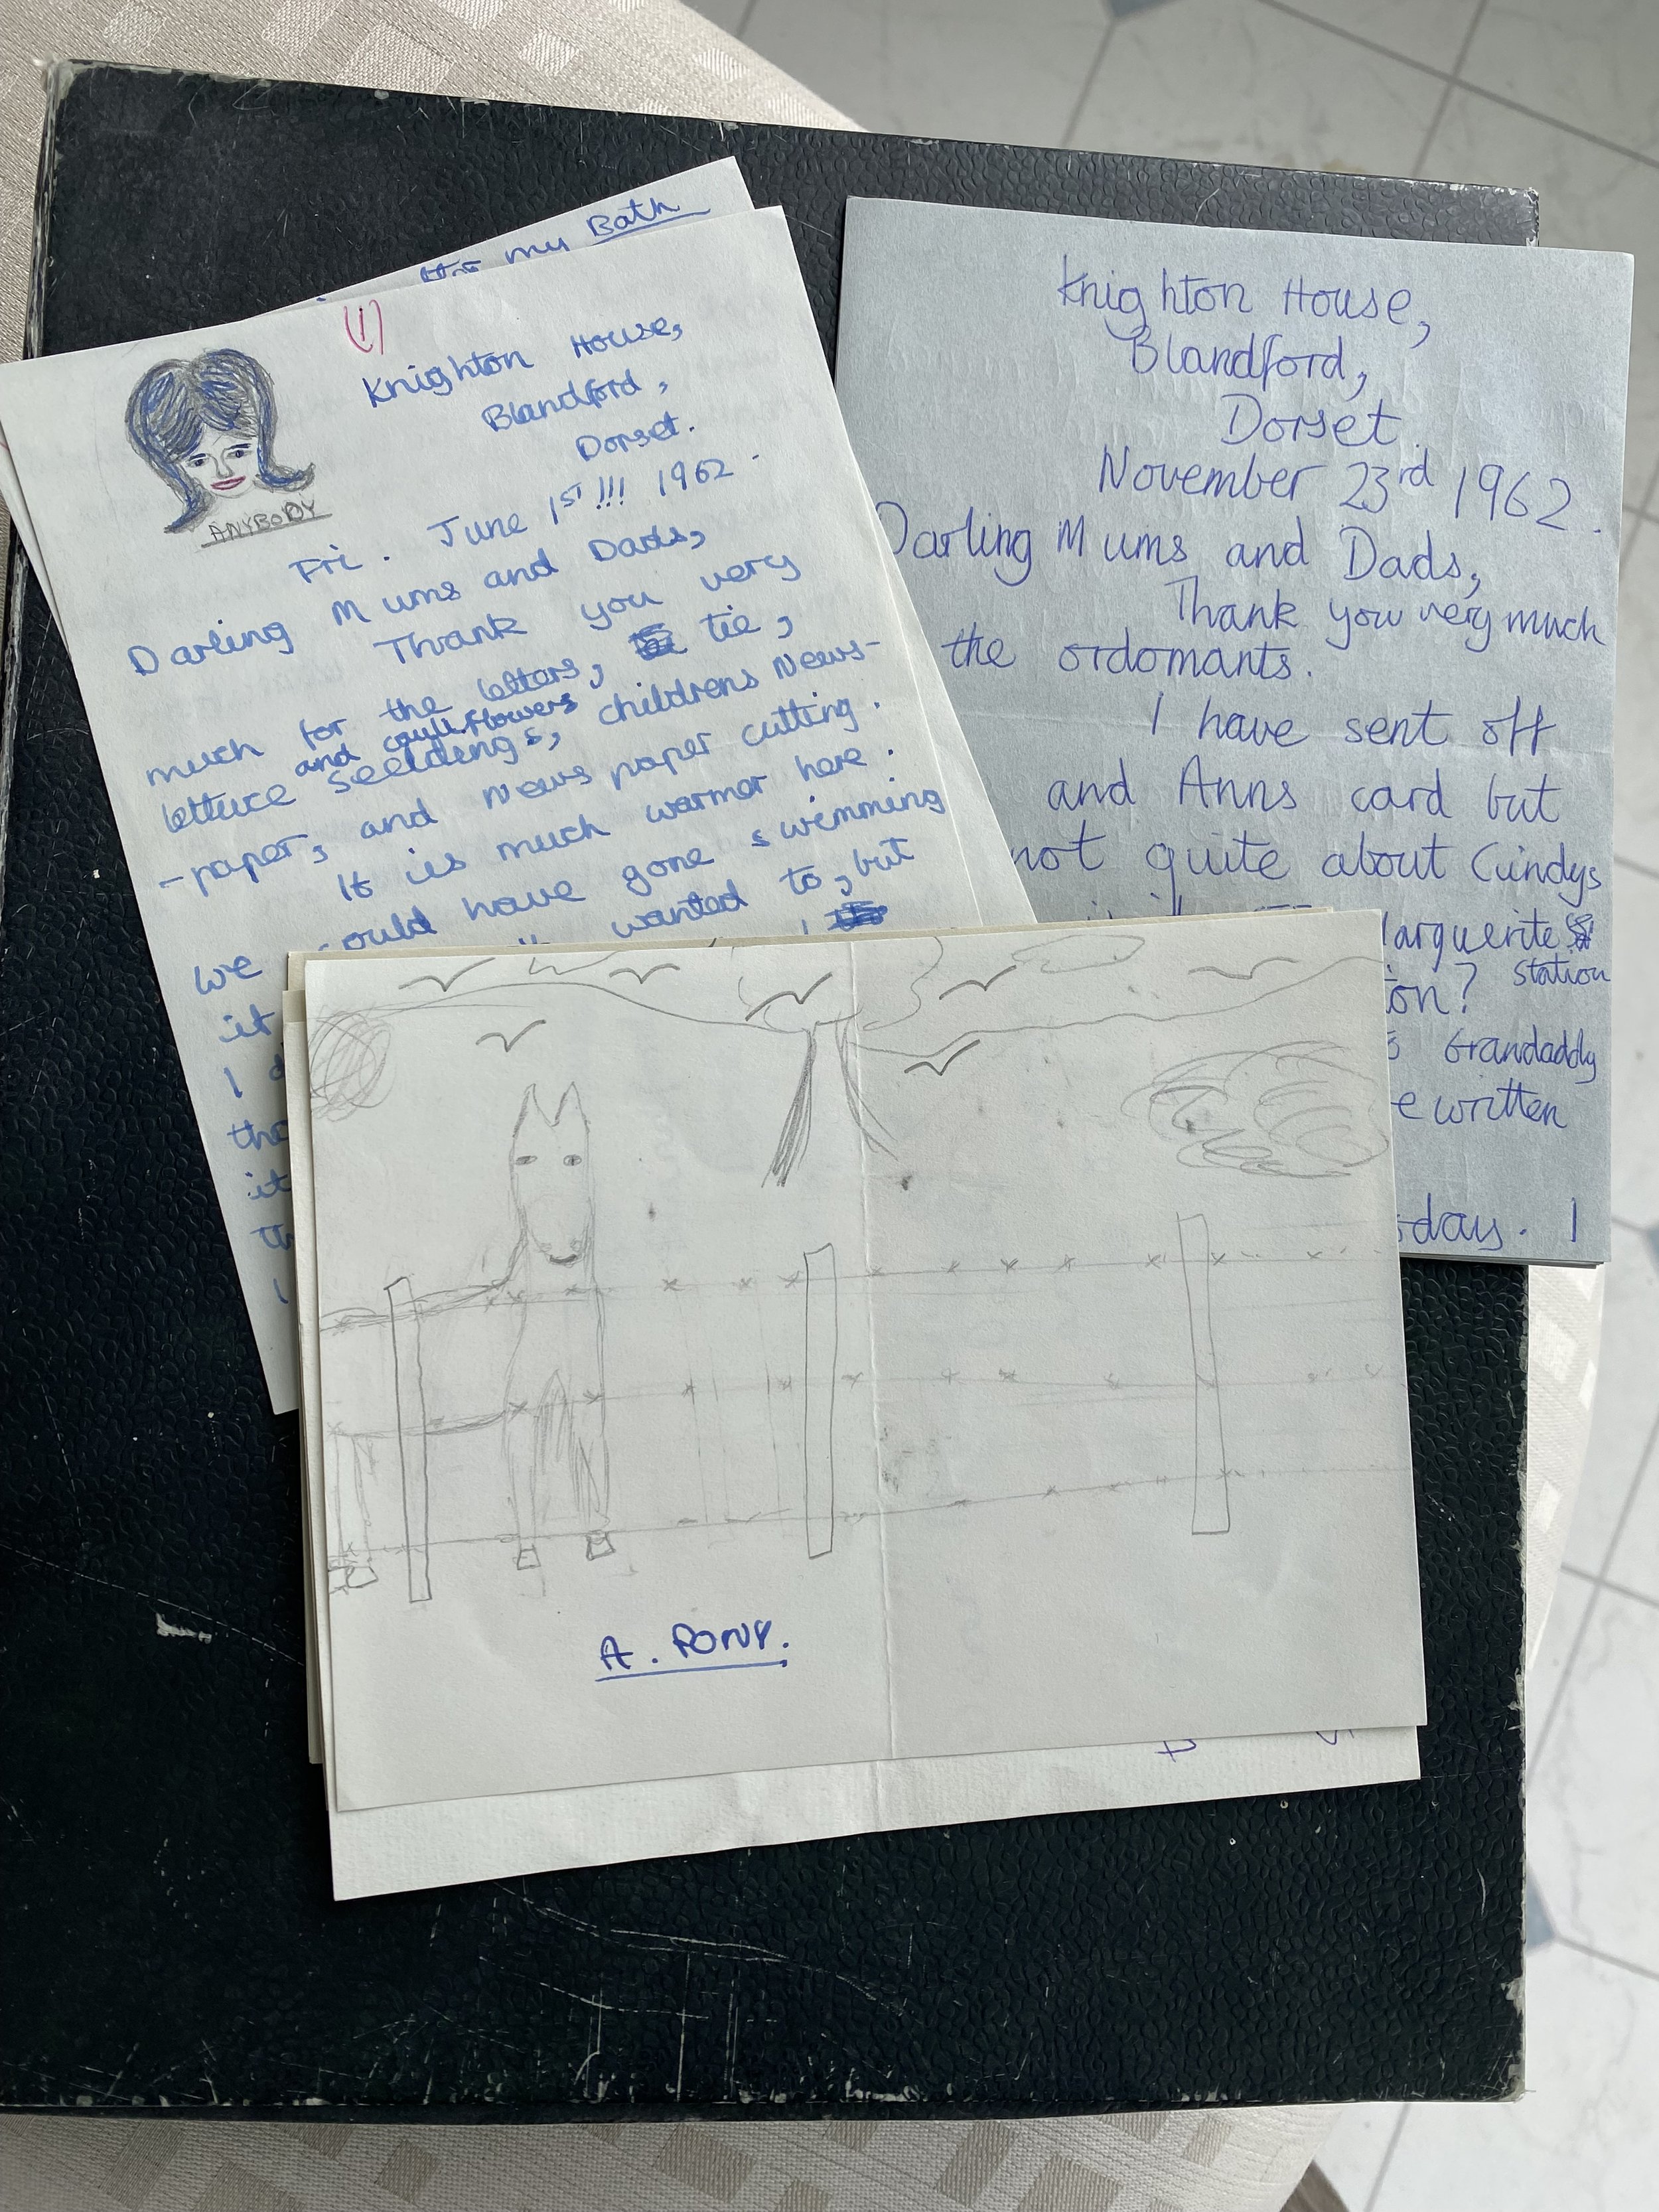 my Bath
(1)
Knighton House,
Blandford,
Dorset.
ANYBODY
Fri. June 1ST!!! 1962.
Darling Mums and Dads,
Thank you very
much for the letters, tie,
and cauliflowers
lettuce seeldings, childrens News-
-paper, and News paper cutting.
It is much warmer here.
We could have gone swimming
it wanted to, but
I
it
I
Knighton House,
Blandford,
Dorset.
November 23rd 1962.
Darling Mums and Dads,
Thank you very much
the ordomants.
I have sent off
and Anns card but
not quite about Cindys
Marguerite
Station
Grandaddy
written
I
A. PONY.